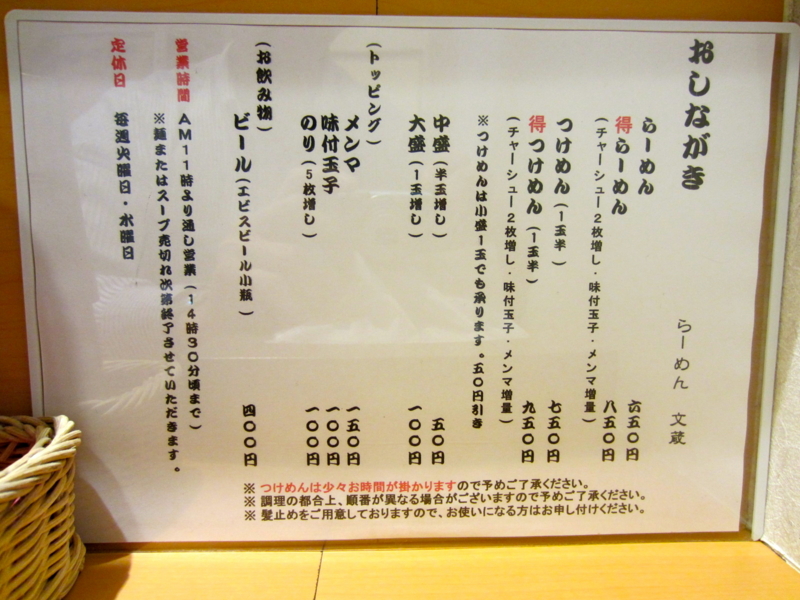 おしながき
らーめん 文蔵
らーめん 六五〇円
得らーめん 八五〇円
(チャーシュー2枚増し・味付玉子・メンマ増量)
つけめん(1玉半) 七五〇円
得つけめん(1玉半) 九五〇円
(チャーシュー2枚増し・味付玉子・メンマ増量)
※つけめんは小盛1玉でも承ります。五〇円引き
中盛(半玉増し) 五〇円
大盛(1玉増し) 一〇〇円
(トッピング)
メンマ 一五〇円
味付玉子 一〇〇円
のり(5枚増し) 一〇〇円
(お飲み物)
ビール(エビスビール小瓶) 四〇〇円
営業時間 AM11時より通し営業(14時30分頃まで)
※麺またはスープ売切れ次第終了させていただきます。
定休日 毎週火曜日・水曜日
※ つけめんは少々お時間が掛かりますので予めご了承ください。
※ 調理の都合上、順番が異なる場合がございますので予めご了承ください。
※ 髪止めをご用意しておりますので、お使いになる方はお申し付けください。